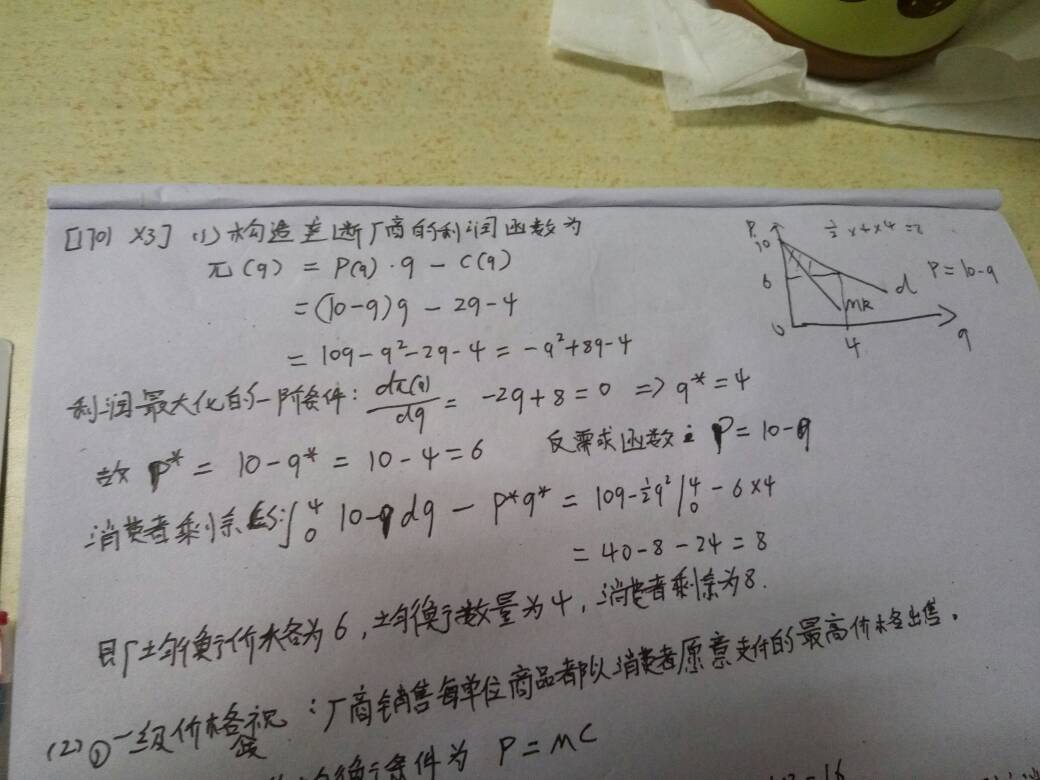 [1701 X3] (1) 构造垄断厂商的利润函数为
π(q) = P(q)·q - C(q)
= (10-q)q - 2q-4
= 10q-q²-2q-4 = -q²+8q-4
利润最大化的一阶条件: dπ(q)/dq = -2q+8=0 => q*=4
故 P* = 10-q* = 10-4=6 反需求函数: P=10-q
消费者剩余 CS: ∫₀⁴ 10-q dq - P*q* = 10q-½q²|₀⁴ - 6×4
= 40-8-24=8
即均衡价格为6,均衡数量为4,消费者剩余为8.
(2) ① 一级价格歧视:厂商销售每单位商品都以消费者愿意支付的最高价格出售。
均衡条件为 P=MC
=16
P
10
6
0
½×4×4=
P=10-q
d
MR
4
q